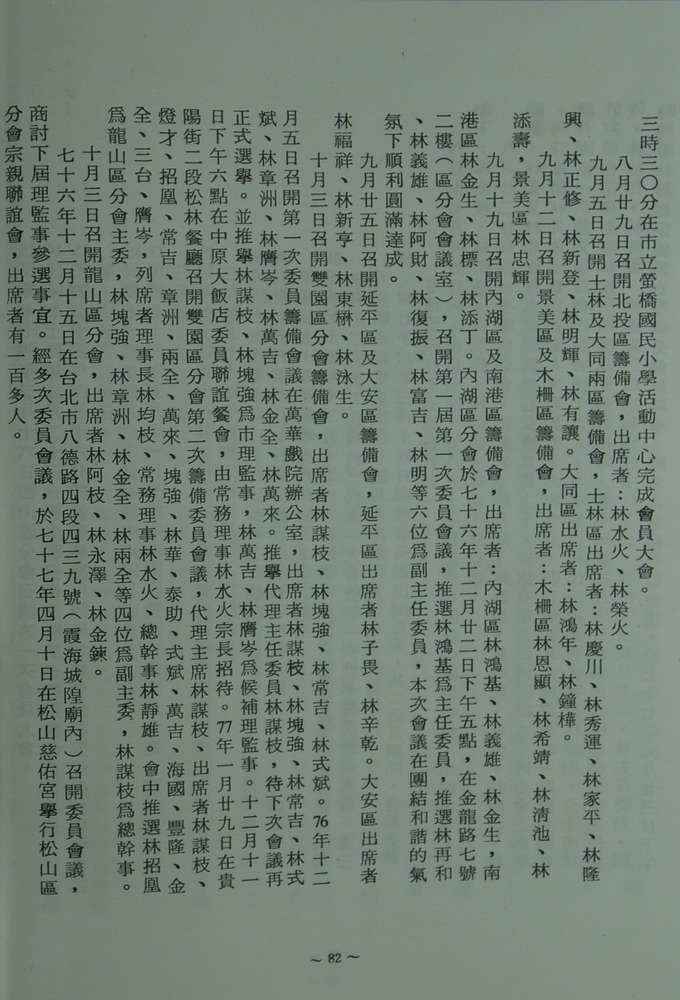 三時三〇分在市立螢橋國民小學活動中心完成會員大會。
八月廿九日召開北投區籌備會，出席者：林水火、林榮火。
九月五日召開士林及大同兩區籌備會，士林區出席者：林慶川、林秀運、林家平、林隆
興、林正修、林新登、林明輝、林有讓。大同區出席者：林鴻年、林鐘樺。
九月十二日召開景美區及木柵區籌備會，出席者：木柵區林恩顯、林希靖、林清池、林
添壽，景美區林忠輝。
九月十九日召開內湖區及南港區籌備會，出席者：內湖區林鴻基、林義雄、林金生，南
港區林金生、林標、林添丁。內湖區分會於七十六年十二月廿二日下午五點，在金龍路七號
二樓（區分會會議室），召開第一屆第一次委員會議，推選林鴻基為主任委員，推選林再和
、林義雄、林阿財、林復振、林富吉、林明等六位為副主任委員，本次會議在團結和諧的氣
氛下順利圓滿達成。
九月廿五日召開延平區及大安區籌備會，延平區出席者林子畏、林辛乾。大安區出席者
林福祥、林新亨、林東栵、林泳生。
十月三日召開雙園區分會籌備會，出席者林謀枝、林塊強、林常吉、林式斌。76年十二
月五日召開第一次委員籌備會議在萬華戲院辦公室，出席者林謀枝、林塊強、林常吉、林式
斌、林章洲、林膺岑、林萬吉、林金全、林萬來。推舉代理主任委員林謀枝，待下次會議再
正式選舉。並推舉林謀枝、林塊強為市理監事，林萬吉、林膺岑為候補理監事。十二月十一
日下午六點在中原大飯店委員聯誼餐會，由常務理事林水火宗長招待。77年一月廿九日在貴
陽街二段松林餐廳召開雙園區分會第二次籌備委員會議，代理主席林謀枝、出席者林謀枝、
燈才、招凰、常吉、章洲、兩全、萬來、塊強、林華、泰助、式斌、萬吉、海國、豐隆、金
全、三台、膺岑，列席者理事長林均枝、常務理事林水火、總幹事林靜雄。會中推選林招凰
為龍山區分會主委，林塊強、林章洲、林金全、林兩全等四位為副主委，林謀枝為總幹事。
十月三日召開龍山區分會，出席者林阿枝、林永澤、林金鍊。
七十六年十二月十五日在台北市八德路四段四三九號（霞海城隍廟內）召開委員會議，
商討下屆理監事參選事宜。經多次委員會議，於七十七年四月十日在松山慈佑宮舉行松山區
分會宗親聯誼會，出席者有一百多人。
～82～